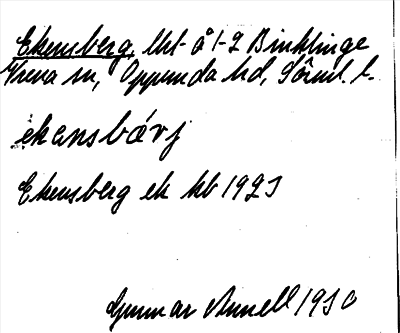 Ekensberg, lht å 1-2 Binklinge
Vrena sn, Oppunda hd, Sörml. l.
ekansbärj
Ekensberg ek kb 1925
Gunnar Linnell 1930